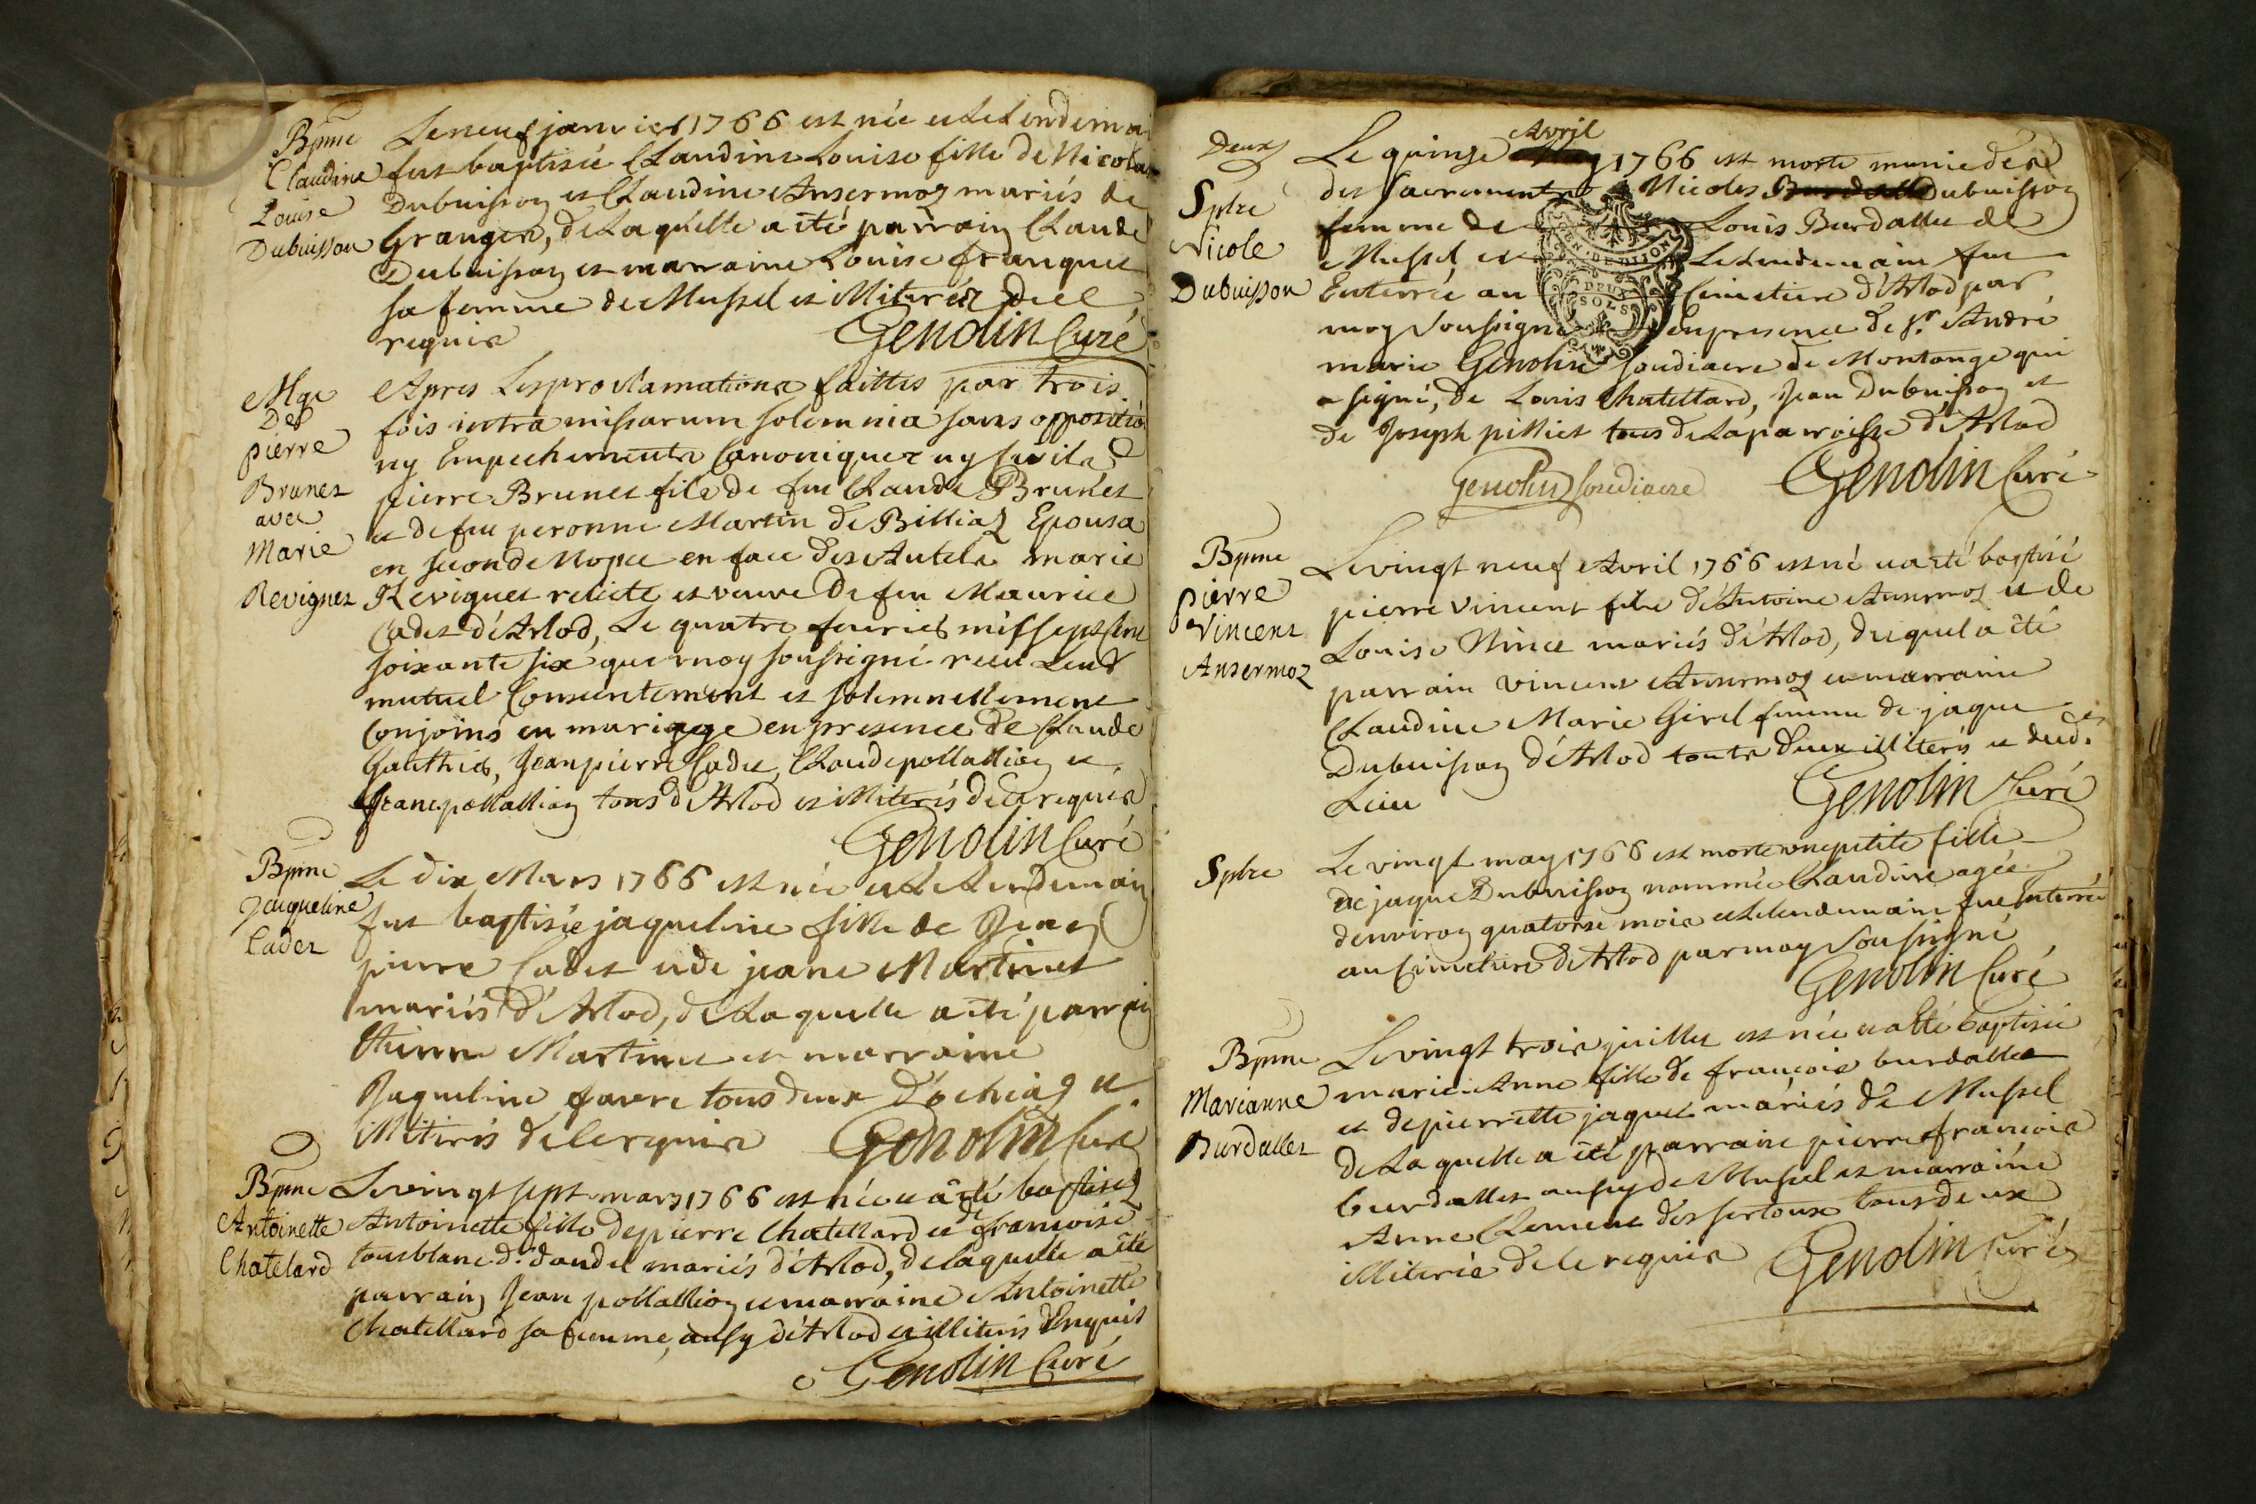 Bpme
Claudine
Louise
Dubuisson
Le neuf janvier 1766 est née et le lendemai
fut baptisée Claudine Louise fille de Nicolas
Dubuisson et Claudine Ansermoz mariés de
Granges, de Laquelle a été parrain Claude
Dubuisson et marraine Louise franquet
sa femme de Mussel et illiterés
requis
Genolin Curé
Mge
De
pierre
Brunet
avec
Marie
Revignet
Apres Les proclamations faittes par trois
fois intra missarum solemnia sans oppositio
ny Empechements Canoniques ny Civils
pierre Brunet fils de feu Claude Brunet
et de feu peronne Martin de Billiaz Epousa
en seconde Nopce en face des Autels marie
Reviguet relicte et veuve de feu Maurice
Cadet d'Arlod, Le quatre fevrier mil sept cent
soixante six que moy soussigné receu Leur
mutuel Consentement et solemnellement
Conjoins en mariage en presence de Claude
Gauthier, Jean pierre Cadet, Claude pollallion et
Jean pollallion tous d'Arlod et illiterés de ce requis
Genolin Curé
Bpme
Jaqueline
Cadet
Le dix Mars 1766 est née et Le Lendemain
fut baptisée jaqueline fille de Jean
pierre Cadet et de jeane Martinet
mariés d'Arlod, de Laquelle a été parrain
Etienne Martinet et marraine
Jaqueline favre tous deux d'ochiaz et
illiterés de le requis
Genolin Curé
Bpme
Antoinette
Chatelard
Le vingt sept mars 1766 est née et a été baptisez
Antoinette fille de pierre Chatellard et de françoise
tousblanc dt. Daudel mariés d'Arlod, de laquelle a été
parrain Jean pollallion et marraine Antoinette
Chatellard sa femme, aussy d'Arlod et illiterés Enquis
Genolin Curé
Deux
Spbre
Nicole
Dubuisson
Avril
Le quinze 1766 est morte munie de
des Sacrements Nicoles Dubuisson
femme de Louis Burdallet de
Mussel et Le lendemain fut
Enterrée au Cimetiere d'Arlod par
GEN. DE DIJON
DEUX
SOLS
moy soussigné en presence de Sr. André
marie Genolin soudiacre de Montange qui
a signé, de Louis Chatellard, Jean Dubuisson et
de Joseph pilliet tous de La parroisse d'Arlod
Genolin soudiacre
Genolin Curé
Bpme
pierre
Vincent
Ansermoz
Le vingt neuf Avril 1766 est né et a été baptisé
pierre vincent fils d'Antoine Ansermoz et de
Louise Nince mariés d'Arlod, duquel a été
parrain vincent Ansermoz et marraine
Claudine Marie Girel femme de jaque
Dubuisson d'Arlod touts deux illiterés et dud.
Lieu
Genolin Curé
Spbre
Le vingt may 1766 est morte une petite fille
de jaque Dubuisson nommée Claudine agée
d'environ quatorze mois et le lendemain fut Enterrée
au Cimetiere d'Arlod par moy Soussigné
Genolin Curé
Bpme
Marianne
Burdallet
Le vingt trois juillet est née et a été baptisée
marie Anne fille de françois burdallet
et de pierrette jaquet mariés de Mussel
de Laquelle a été parrain pierre françois
burdallet aussy de Mussel et marraine
Anne Clement des sertoux tous deux
illiterés de le requis
Genolin Curé